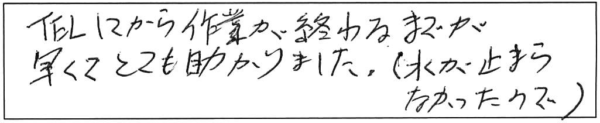 TELしてから作業が終わるまでが
早くてとても助かりました。(水が止まら
なかったので)